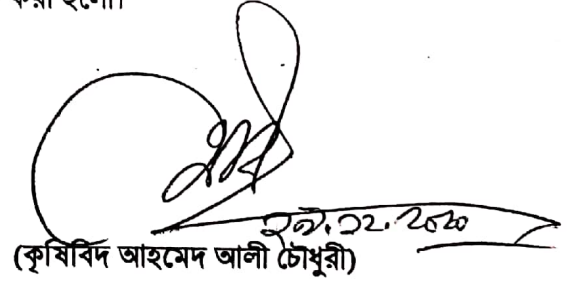 করা হলো।
২৯.১২.২০২০
(কৃষিবিদ আহমেদ আলী চৌধুরী)